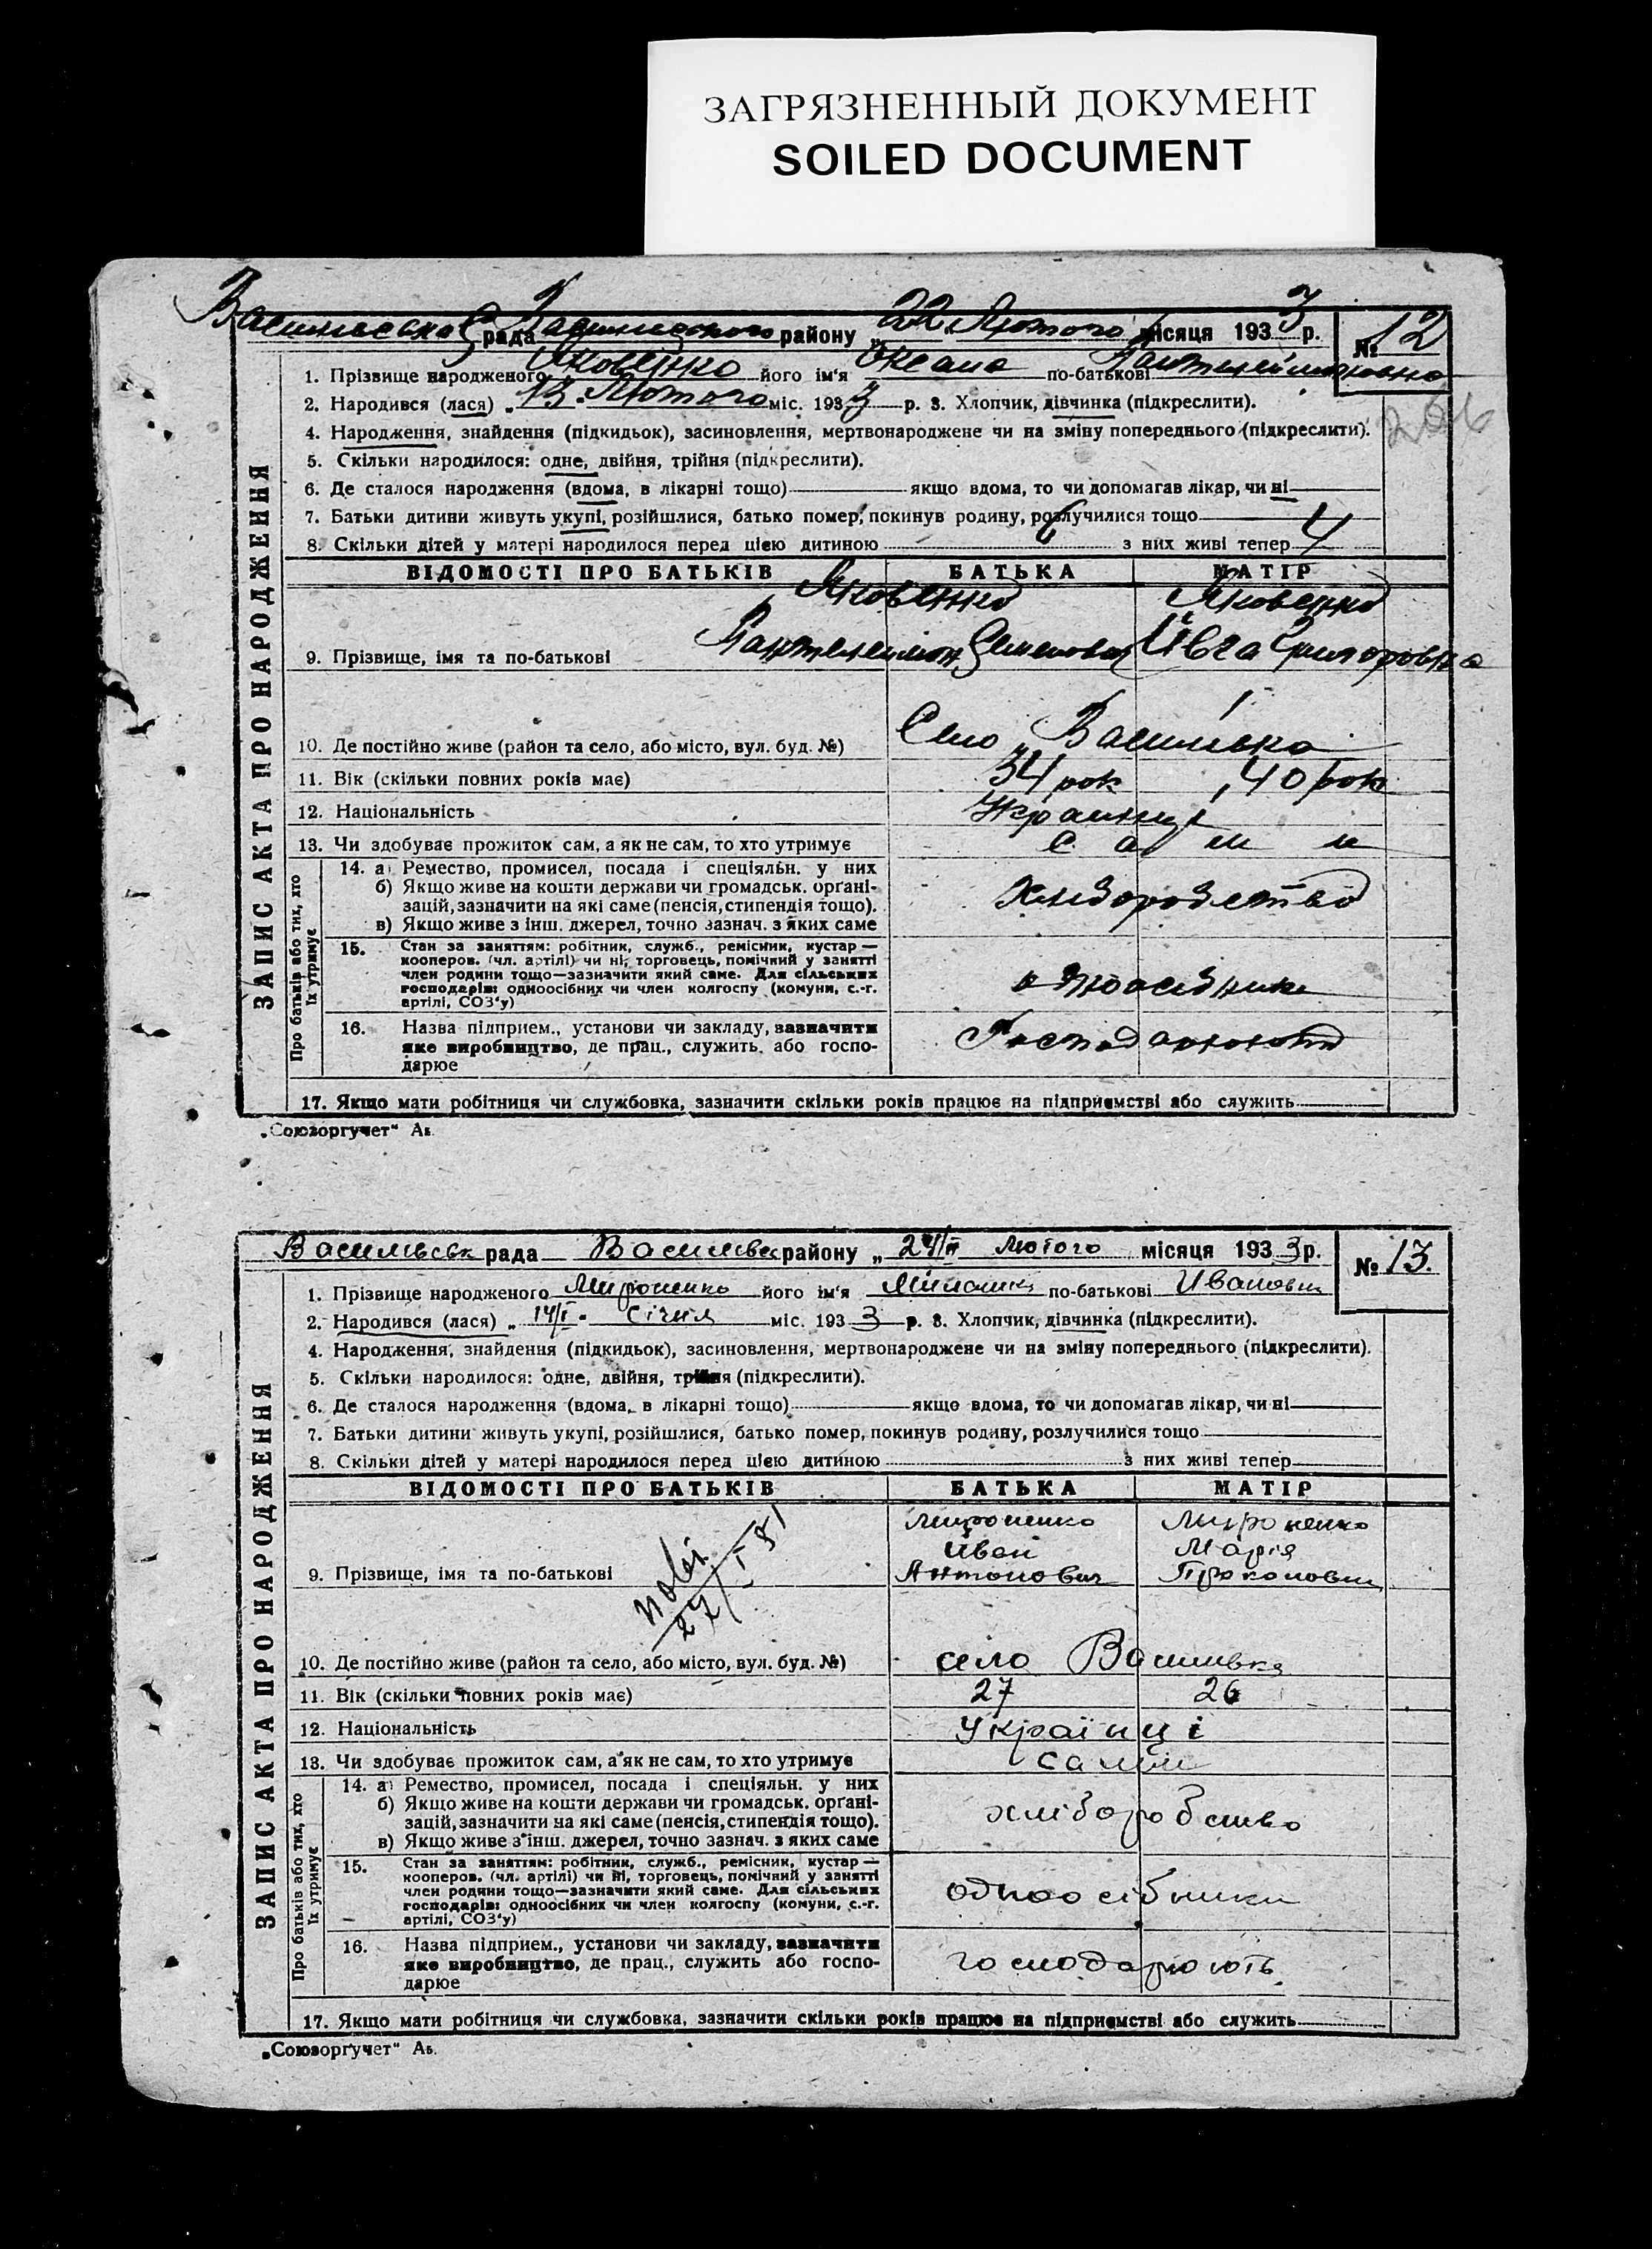 ЗАГРЯЗНЕННЫЙ ДОКУМЕНТ
SOILED DOCUMENT
Василівська рада района району „ 22 Лютого місяця 1933 р. № 12
1. Прізвище народженого Яковенко його ім'я Оксана по-батькові
2. Народився (лася) „ 13 Лютого міс. 1933 р. 3. Хлопчик, дівчинка (підкреслити).
206
4. Народження, знайдення (підкидьок), засиновлення, мертвонароджене чи на зміну попереднього (підкреслити).
5. Скільки народилося: одне, двійня, трійня (підкреслити).
6. Де сталося народження (вдома, в лікарні тощо) якщо вдома, то чи допомагав лікар, чи ні
7. Батьки дитини живуть укупі, розійшлися, батько помер, покинув родину, розлучилися тощо
8. Скільки дітей у матері народилося перед цією дитиною 6 з них живі тепер 4
ЗАПИС АКТА ПРО НАРОДЖЕННЯ
ВІДОМОСТІ ПРО БАТЬКІВ БАТЬКА МАТІР
Яковенко Яковенко
9. Прізвище, імя та по-батькові Пантелеимон Семенович Ивга Григоровна
10. Де постійно живе (район та село, або місто, вул. буд. №) Село Василівка
11. Вік (скільки повних років має) 34 рок 40 рок
12. Національність Українці
13. Чи здобуває прожиток сам, а як не сам, то хто утримує сами
Про батьків або тих, хто їх утримує
14. а) Ремество, промисел, посада і спеціяльн. у них
б) Якщо живе на кошти держави чи громадськ. орґані-
зацій, зазначити на які саме (пенсія, стипендія тощо). Хліборобство
в) Якщо живе з інш. джерел, точно зазнач. з яких саме
15. Стан за заняттям: робітник, служб., ремісник, кустар —
кооперов. (чл. артілі) чи ні, торговець, помічний у занятті
член родини тощо—зазначити який саме. Для сільських
господарів: одноосібних чи член колгоспу (комуни, с.-г. одноосібники
артілі, СОЗ'у)
16. Назва підприєм., установи чи закладу, зазначити
яке виробництво, де прац., служить, або госпо- Господарюють
дарює
17. Якщо мати робітниця чи службовка, зазначити скільки років працює на підприємстві або служить
„Союзоргучет“
Василівськ рада Василівськ району „ 24/II лютого місяця 1933 р. № 13.
1. Прізвище народженого Мироненко його ім'я по-батькові Ивановна
2. Народився (лася) „ 14/I “ Січня міс. 1933 р. 3. Хлопчик, дівчинка (підкреслити).
4. Народження, знайдення (підкидьок), засиновлення, мертвонароджене чи на зміну попереднього (підкреслити).
5. Скільки народилося: одне, двійня, трійня (підкреслити).
6. Де сталося народження (вдома, в лікарні тощо) якщо вдома, то чи допомагав лікар, чи ні
7. Батьки дитини живуть укупі, розійшлися, батько помер, покинув родину, розлучилися тощо
8. Скільки дітей у матері народилося перед цією дитиною з них живі тепер
ЗАПИС АКТА ПРО НАРОДЖЕННЯ
ВІДОМОСТІ ПРО БАТЬКІВ БАТЬКА МАТІР
Мироненко Мироненко
Иван Марія
9. Прізвище, імя та по-батькові Антонович Прокоповна
10. Де постійно живе (район та село, або місто, вул. буд. №) село Василівка
11. Вік (скільки повних років має) 27 26
12. Національність Українці
13. Чи здобуває прожиток сам, а як не сам, то хто утримує сами
Про батьків або тих, хто їх утримує
14. а) Ремество, промисел, посада і спеціяльн. у них
б) Якщо живе на кошти держави чи громадськ. орґані-
зацій, зазначити на які саме (пенсія, стипендія тощо). хліборобство
в) Якщо живе з інш. джерел, точно зазнач. з яких саме
15. Стан за заняттям: робітник, служб., ремісник, кустар —
кооперов. (чл. артілі) чи ні, торговець, помічний у занятті
член родини тощо—зазначити який саме. Для сільських
господарів: одноосібних чи член колгоспу (комуни, с.-г. одноосібники
артілі, СОЗ'у)
16. Назва підприєм., установи чи закладу, зазначити
яке виробництво, де прац., служить або госпо- господарюють
дарює
17. Якщо мати робітниця чи службовка, зазначити скільки років працює на підприємстві або служить
„Союзоргучет“